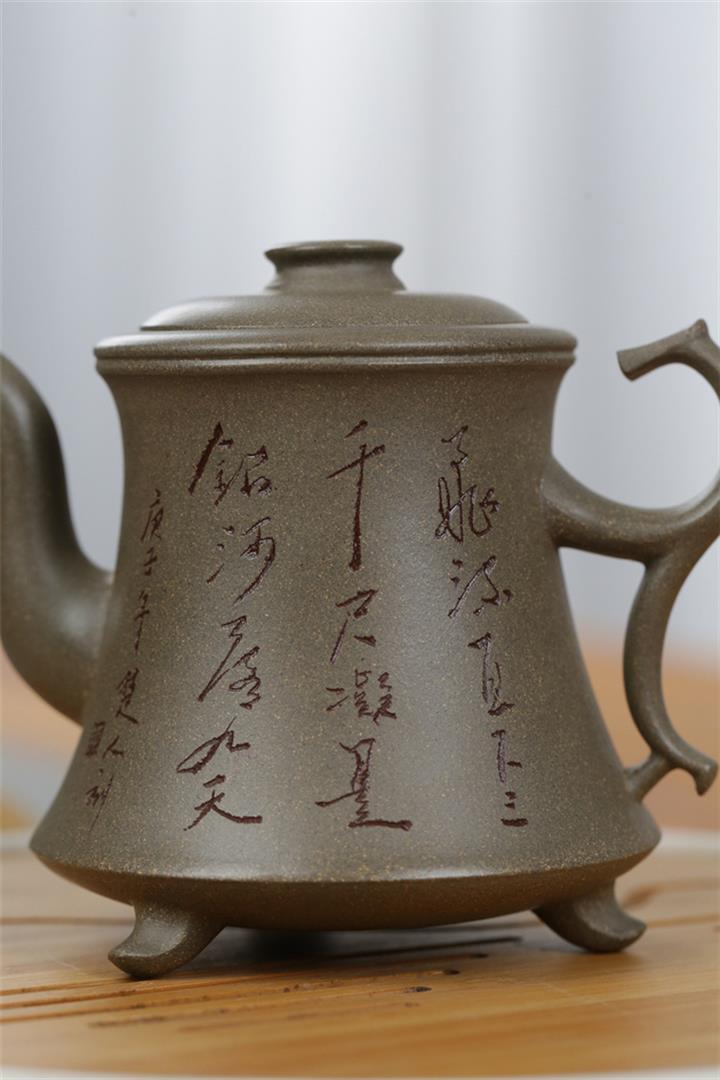 飛流直下三
千尺凝是
銀河落九天
庚子年楚人
刻